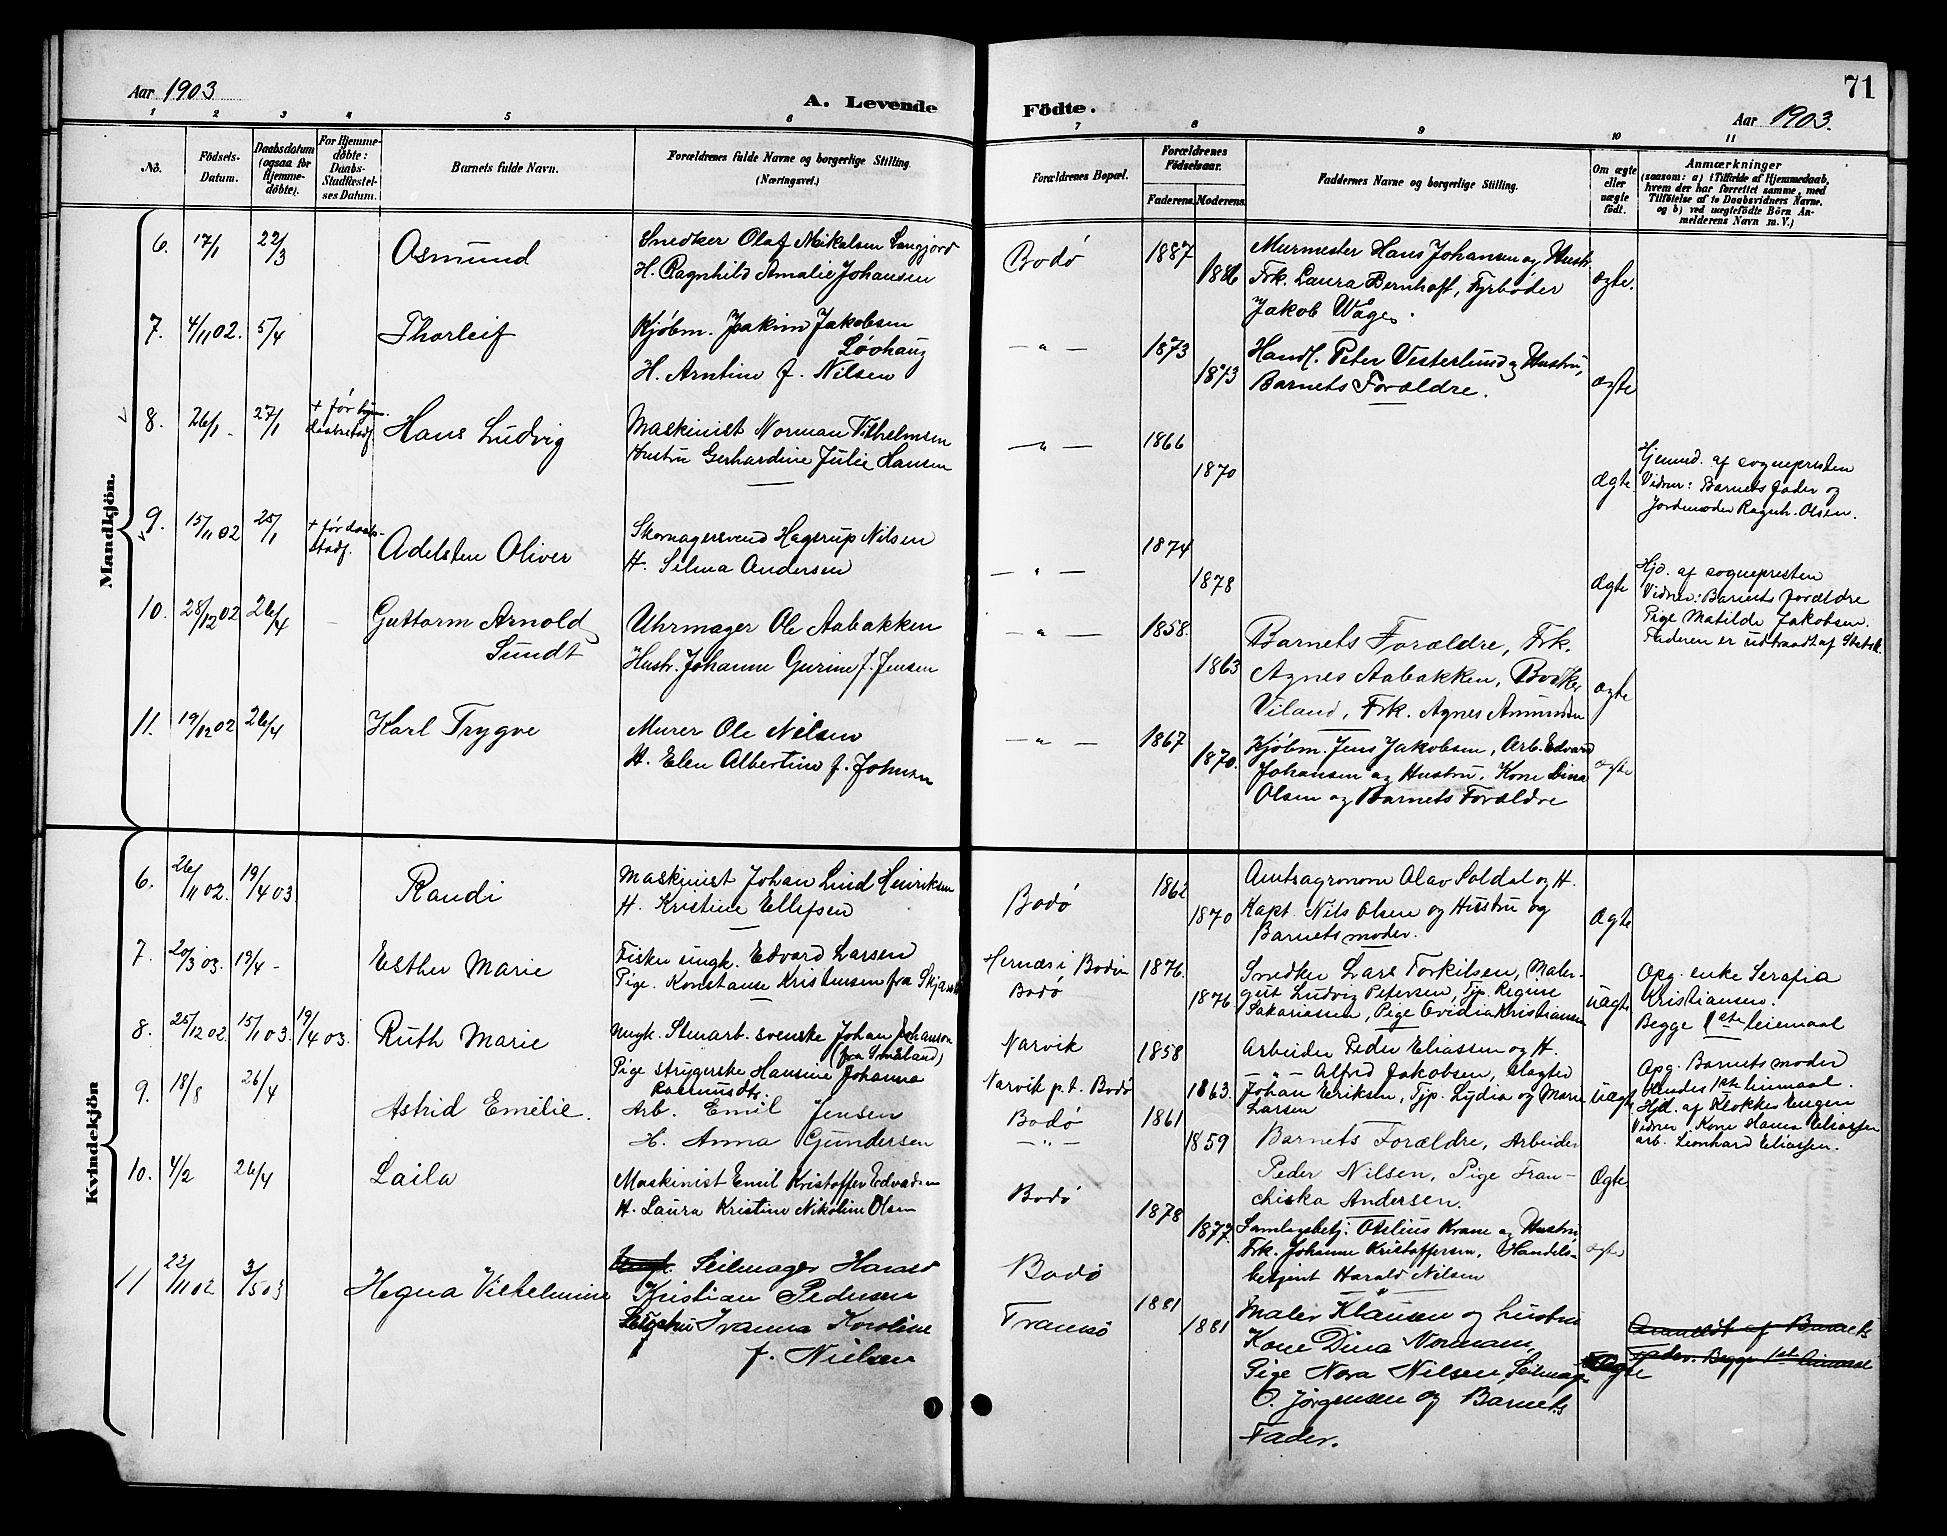 Aar 1903
A. Levende
1 2 3 4 5 6
No.
Födsels-
Datum.
Daabsdatum
(ogsaa for
Hjemme-
döbte).
For Hjemme-
döbte:
Daabs-
Stadfæstel-
ses Datum.
Barnets fulde Navn.
Forældrenes fulde Navne og borgerlige Stilling.
(Næringsvei.)
Mandkjön.
6. 17/1 22/3 Asmund
Snedker Olaf Mikalsen
H. Ragnhild Amalie Johansen
7. 4/11 02. 5/4 Thorleif
Kjøbm. Joakim Jakobsen
Løvhaug
H. Arntine f. Nilsen
8. 26/1 27/1 + før
daabsstadf. Hans Ludvig
Maskinist Norman Vilhelmsen
Hustru Gerhardine Julie Hansen
9. 15/11 02 25/1 + før daabs-
stadf. Adelsten Oliver
Skomagersvend Hagerup Nilsen
H. Selma Andersen
10. 28/12 02 26/4 Guttorm Arnold
Sundt
Uhrmager Ole Aabakken
Hustr. Johanne Gurine f. Jensen
11. 19/12 02 26/4 Karl Trygve
Murer Ole Nilsen
H. Elen Albertine f. Johnsen
Kvindekjön
6. 26/11 02. 19/4 03. Randi
Maskinist Johan Lind Henriksen
H. Kristine Ellefsen
7. 20/3 03. 19/4 - Esther Marie
Fisker ungk. Edvard Larsen
Pige. Konstanse Kristensen fra
8. 25/12 02. 15/1 03 19/4 03. Ruth Marie
Ungk. Stenarb. svenske Johan Johanson
(fra Småland)
Pige strygerske Hansine Johanna
Rasmusdtr.
9. 18/8 26/4 Astrid Emilie.
Arb. Emil Jensen
H. Anna Gundersen
10. 4/2 26/4 Laila
Maskinist Emil Kristoffer Edvadsen
H. Laura Kristine Nikoline Olsen
11 22/11 02 3/5 03 Hegna Vilhelmine
Ungk. Seilmager Harald
Kristian Pedersen
Hustru Ivanna Karoline
f. Nielsen
71
Födte.
Aar 1903.
7 8 9 10 11
Forældrenes Bopæl.
Forældrenes
Födselsaar.
Faderens. Moderens.
Faddernes Navne og borgerlige Stilling.
Om ægte
eller
uægte
födt.
Anmærkninger
(saasom: a) i Tilfælde af Hjemmedaab,
hvem der har forrettet samme, med
Tilföielse af to Daabsvidners Navne,
og b) ved uægtefödte Börn An-
melderens Navn m. V.)
Bodø 1887 1886
Murmester Hans Johansen og Hustr.
Frk. Laura Bernhoft, Fyrbøder
Jakob Wåge.
ægte.
- " - 1873 1873
Handl. Peter Vesterlund og Hustru,
Barnets Forældre.
ægte
- " - 1866 1870 ægte
Hjemmd. af sognepresten
Vidner: Barnets fader og
Jordmoder Ragnh. Olsen.
- " - 1874 1878 ægte
Hjd. af sognepresten
Vidner: Barnets forældre
Pige Matilde Jakobsen.
Faderen er udtraadt af Statsk.
- " - 1858. 1863
Barnets Forældre, Frk.
Agnes Aabakken,
Viland, Frk. Agnes Amundsen
ægte
- " - 1867 1870.
Kjøbm. Jens Jakobsen, Arb. Edvard
Johansen og Hustru, Kone Dina
Olsen og Barnets Forældre
ægte
Bodø 1862 1870
Amtsagronom Olav Soldal og H.
Kapt. Nils Olsen og Hustru og
Barnets moder.
Ægte
Hernæs i Bodin
Bodø 1876. 1876
Snedker Lars Torkilsen, Maler-
gut Ludvig Petersen, Tjp. Regine
Sakariassen, Pige Ovidia Kristiansen
uægte
Opg. enke Serafia
Kristiansen.
Begge 1ste leiemaal
Narvik
Narvik p.t. Bodø 1858 1863.
Arbeider Peder Eliassen og H.
- " - Alfred Jakobsen, Slagter
Johan Eriksen, Tjp. Lydia og Marie
Larsen
Uægte
Opg. Barnets moder
Hendes 1ste leiemaal.
Hjd. af Klokker Engen
Vidner, Kone Hanna Eliassen
arb. Leonhard Eliassen.
Bodø
- " - 1861 1859
Barnets Forældre, Arbeider
Peder Nilsen, Pige Fran-
chiska Andersen.
Ægte
Bodø 1878 1877.
Samlagsbetj. Otelius Krane og Hustru
Frk. Johanne Kristoffersen, Handels-
betjent Harald Nilsen
ægte
Bodø
Tromsø 1881 1881
Maler Klausen og hustru
Kone Dina Normann,
Pige Nora Nilsen, Seilmag.
O. Jörgensen og Barnets
Fader.
Ægte
Anmeldt af Barnets
Fader. Begge 1ste leiemaal